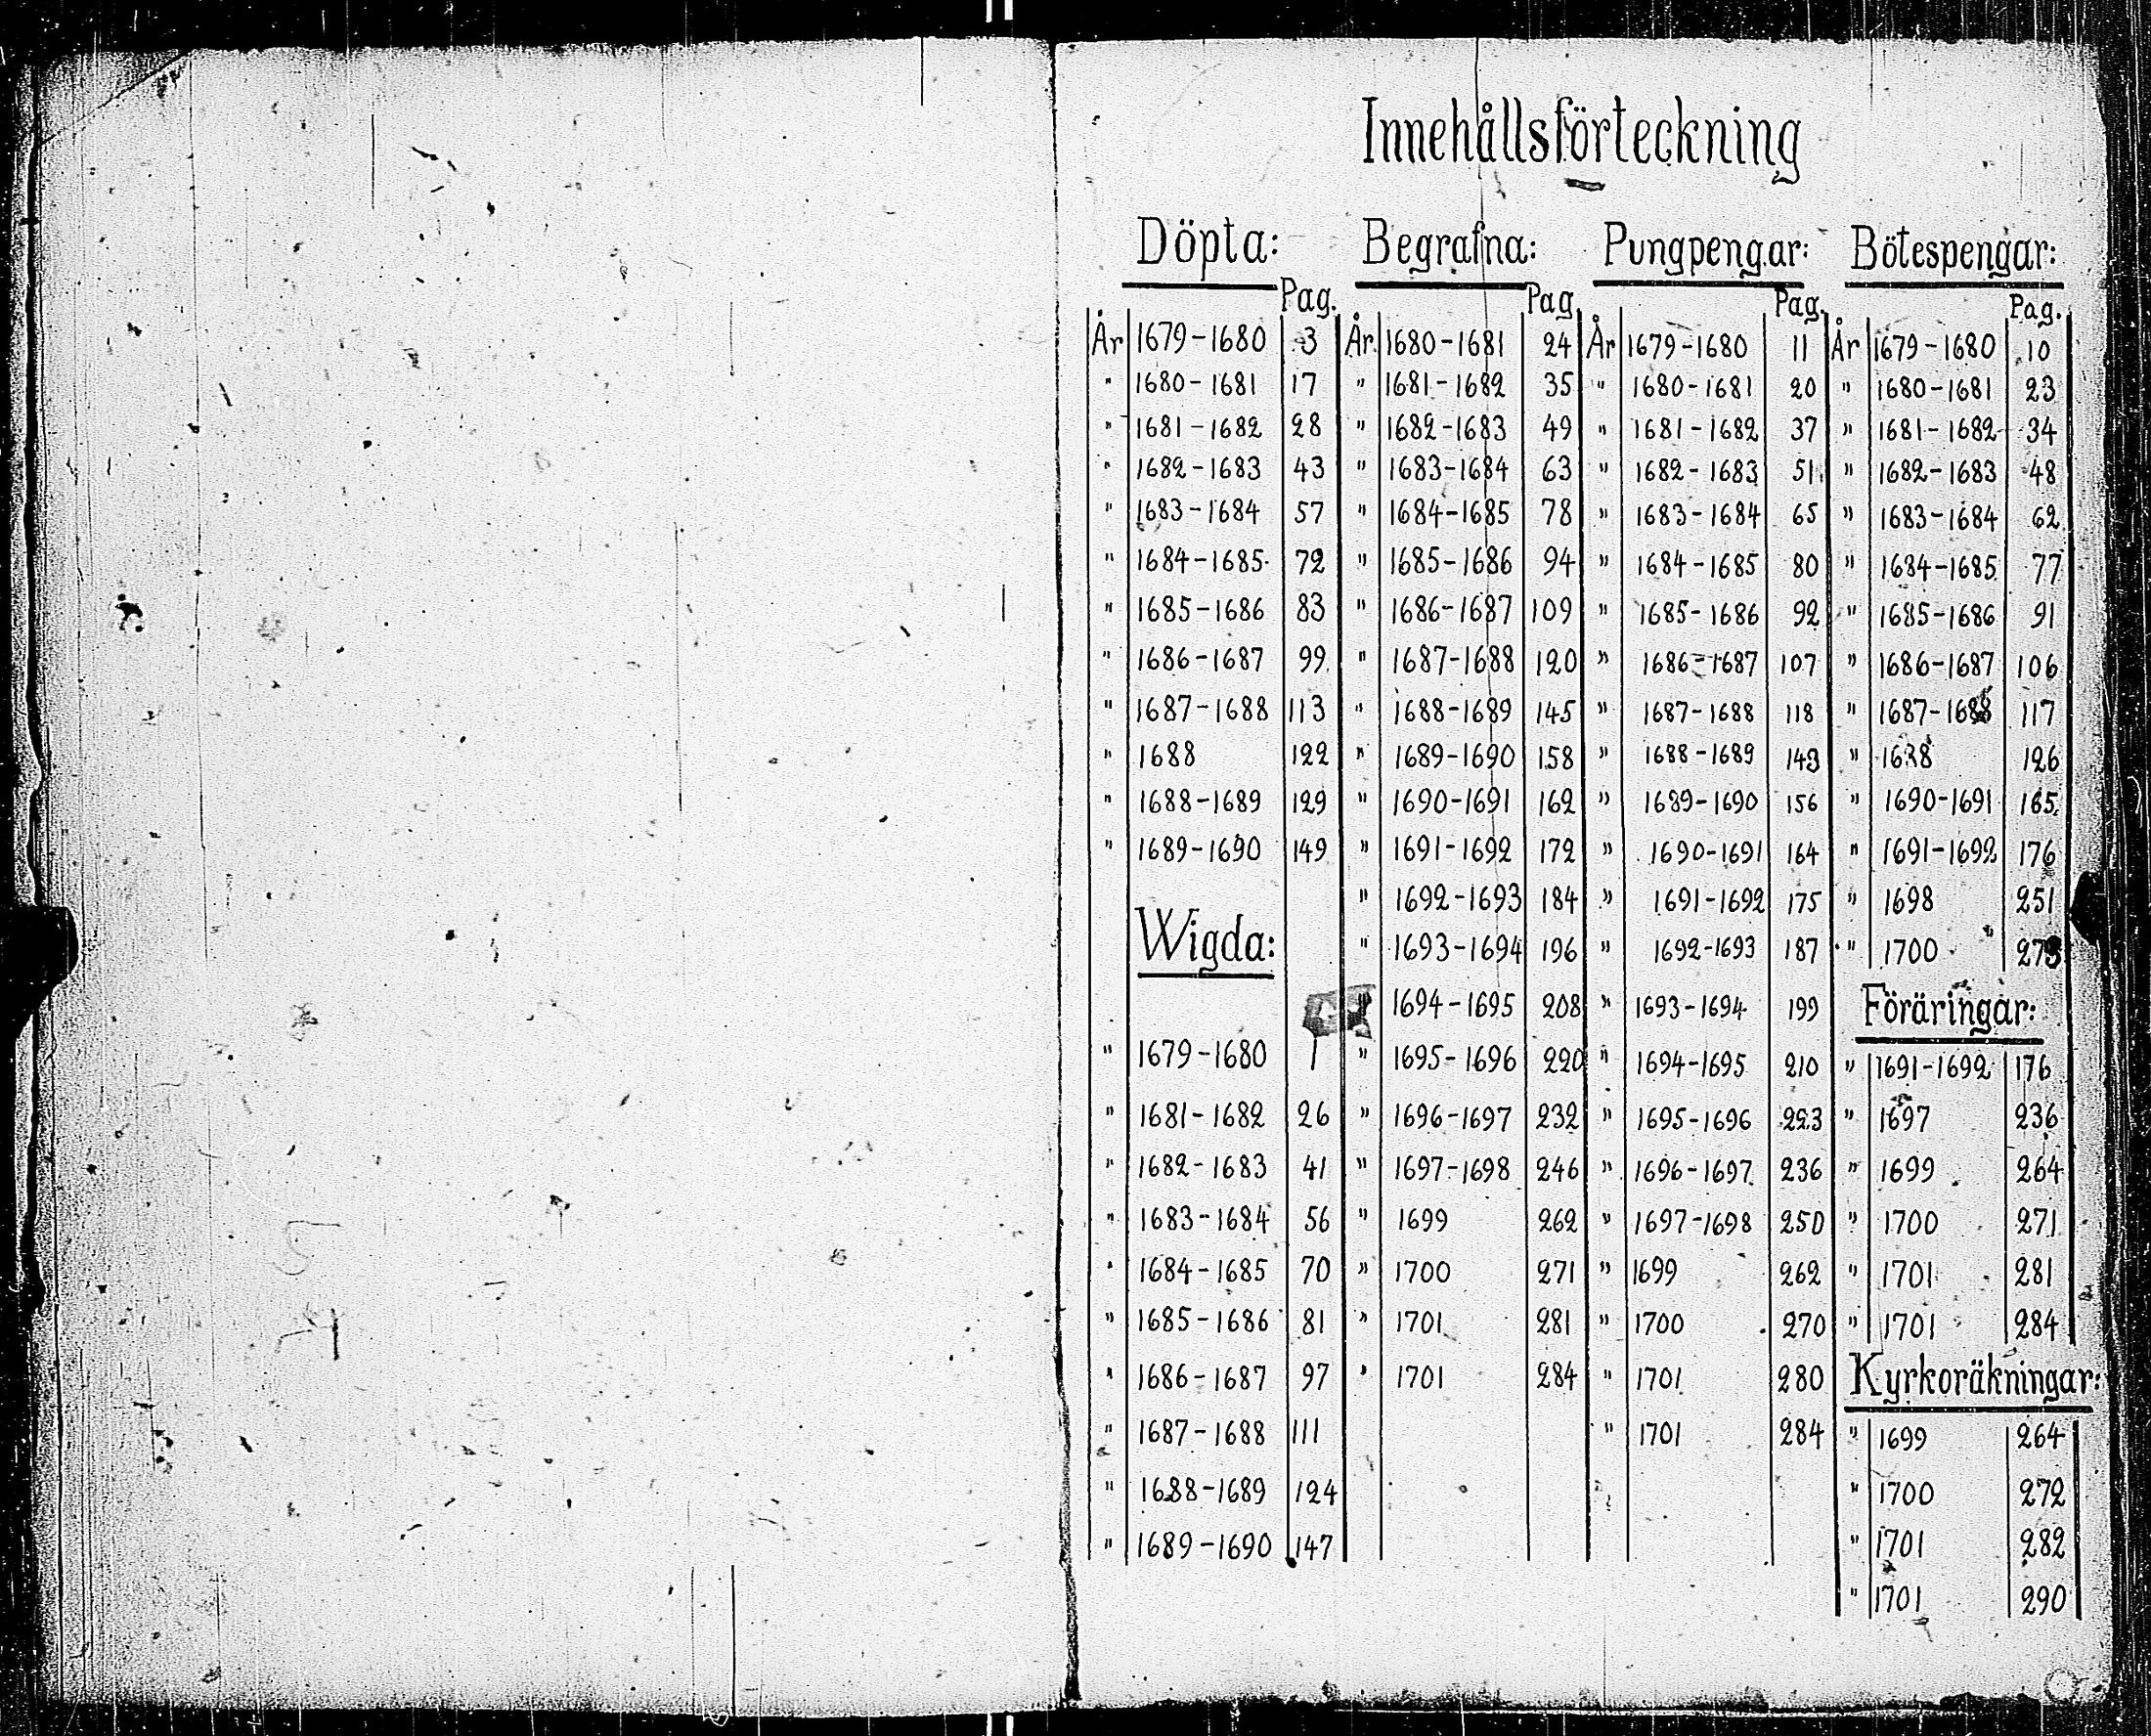 Innehållsförteckning
Döpta: Begrafna: Pungpengar: Bötespengar:
Pag. Pag. Pag. Pag.
År 1679-1680 3 År 1680-1681 24 År 1679-1680 11 År 1679-1680 10
" 1680-1681 17 " 1681-1682 35 " 1680-1681 20 " 1680-1681 23
" 1681-1682 28 " 1682-1683 49 " 1681-1682 37 " 1681-1682 34
" 1682-1683 43 " 1683-1684 63 " 1682-1683 51 " 1682-1683 48
" 1683-1684 57 " 1684-1685 78 " 1683-1684 65 " 1683-1684 62
" 1684-1685 72 " 1685-1686 94 " 1684-1685 80 " 1684-1685 77
" 1685-1686 83 " 1686-1687 109 " 1685-1686 92 " 1685-1686 91
" 1686-1687 99 " 1687-1688 120 " 1686-1687 107 " 1686-1687 106
" 1687-1688 113 " 1688-1689 145 " 1687-1688 118 " 1687-1688 117
" 1688 122 " 1689-1690 158 " 1688-1689 143 " 1688 126
" 1688-1689 129 " 1690-1691 162 " 1689-1690 156 " 1690-1691 165
" 1689-1690 149 " 1691-1692 172 " 1690-1691 164 " 1691-1692 176
" 1692-1693 184 " 1691-1692 175 " 1698 251
Wigda: " 1693-1694 196 " 1692-1693 187 " 1700 273
" 1694-1695 208 " 1693-1694 199 Föräringar:
" 1679-1680 1 " 1695-1696 220 " 1694-1695 210 " 1691-1692 176
" 1681-1682 26 " 1696-1697 232 " 1695-1696 223 " 1697 236
" 1682-1683 41 " 1697-1698 246 " 1696-1697 236 " 1699 264
" 1683-1684 56 " 1699 262 " 1697-1698 250 " 1700 271
" 1684-1685 70 " 1700 271 " 1699 262 " 1701 281
" 1685-1686 81 " 1701 281 " 1700 270 " 1701 284
" 1686-1687 97 " 1701 284 " 1701 280 Kyrkoräkningar:
" 1687-1688 111 " 1701 284 " 1699 264
" 1688-1689 124 " 1700 272
" 1689-1690 147 " 1701 282
" 1701 290